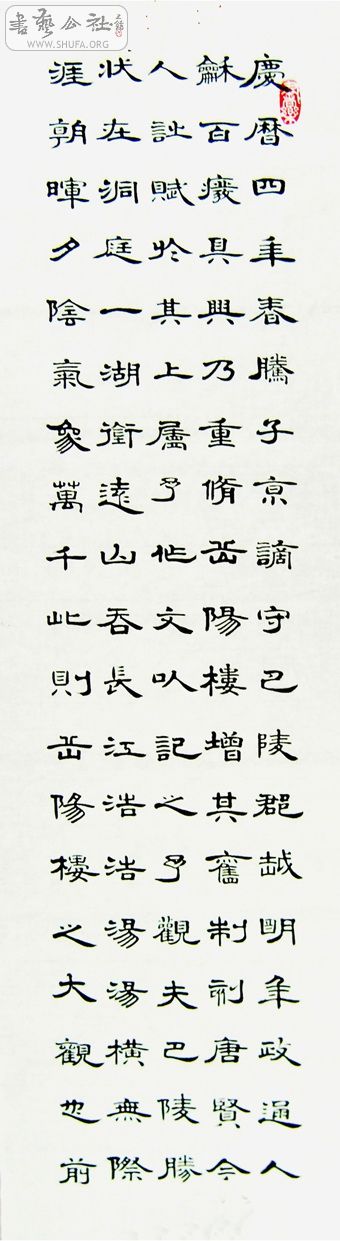 書藝公社
WWW.SHUFA.ORG
慶曆四年春騰子京謫守巴陵郡越明年政通人
龢百癈具興乃重脩岳陽樓增其舊制刻唐賢今
人詩賦於其上屬予作文以記之予觀夫巴陵勝
狀在洞庭一湖銜遠山吞長江浩浩湯湯橫無際
涯朝暉夕陰氣象萬千此則岳陽樓之大觀也前